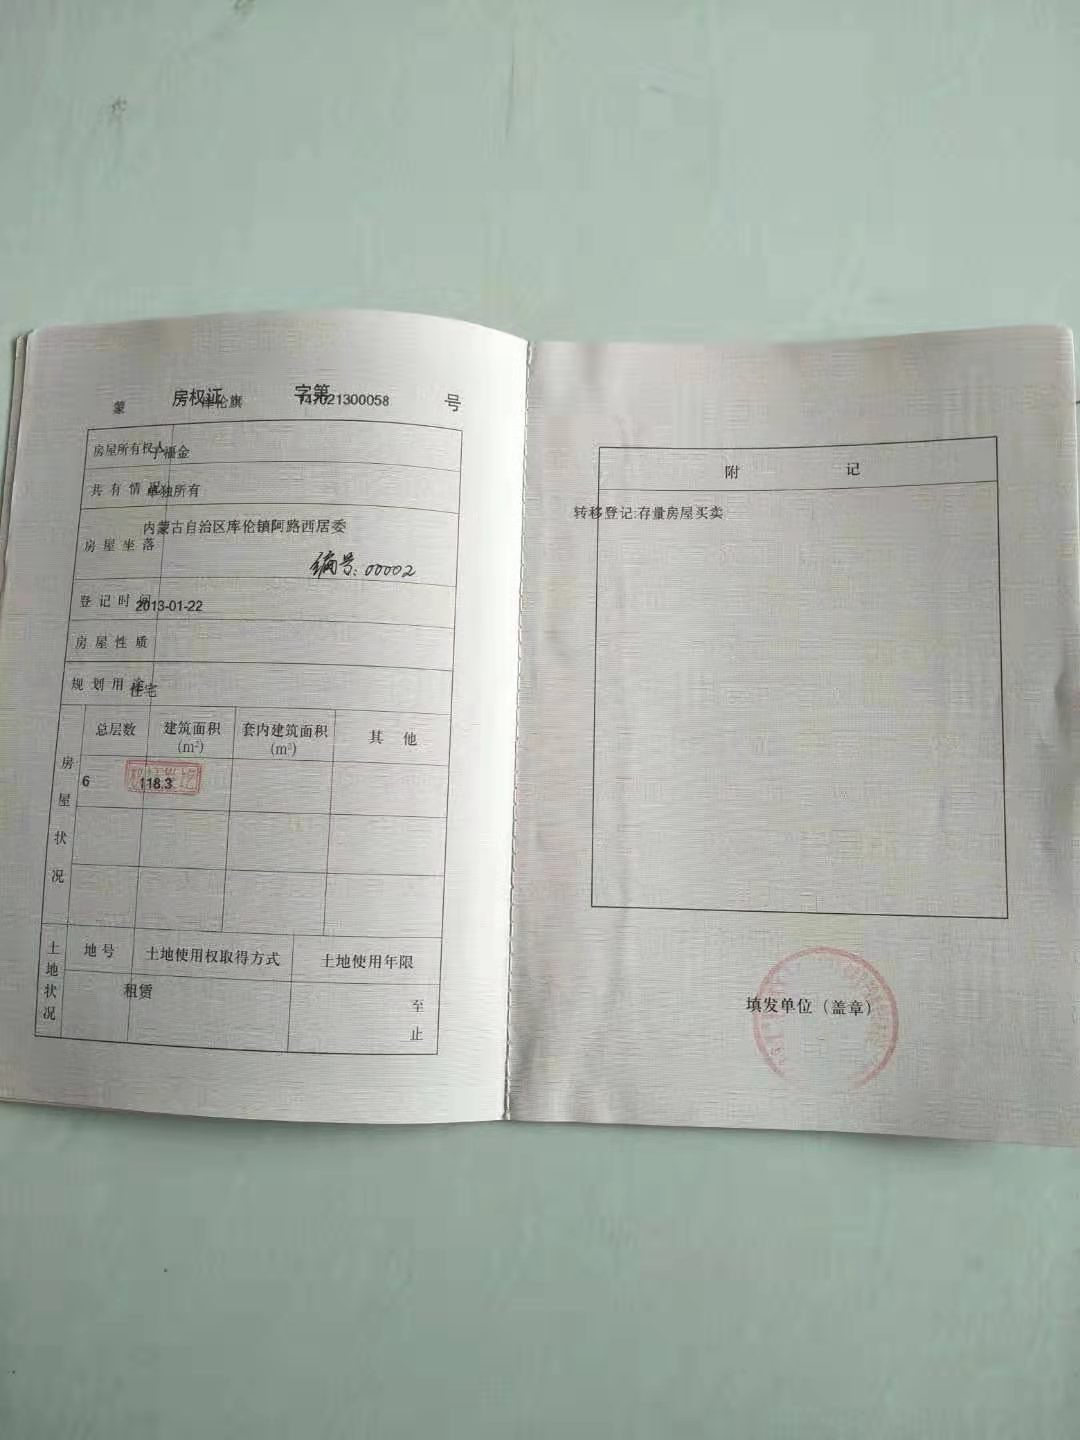 蒙 房权证 库伦旗 字第 147021300058 号
房屋所有权人 于福金
共有情况 单独所有
房屋坐落 内蒙古自治区库伦镇阿路西居委
编号:00002
登记时间 2013-01-22
房屋性质
规划用途 住宅
房屋状况
总层数 建筑面积(m²) 套内建筑面积(m²) 其他
6 118.3
土地状况
地号 土地使用权取得方式 土地使用年限
租赁 至
止
附记
转移登记:存量房屋买卖
填发单位(盖章)